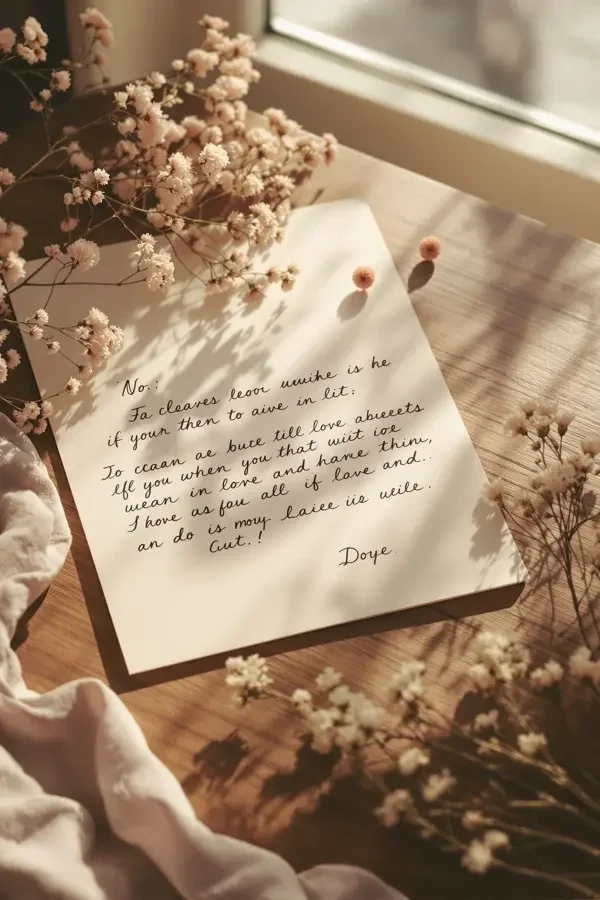 No.:
Fa cleaves leoor uwihe is he
if your then to aive in lit:
To ccaan ae buce till love abueets
lfl you when you that wiit ioe
wean in love and hane thinı,
I hove as fou all if love and..
an do is moy laiee iis ueile.
Gut.!
Doye.